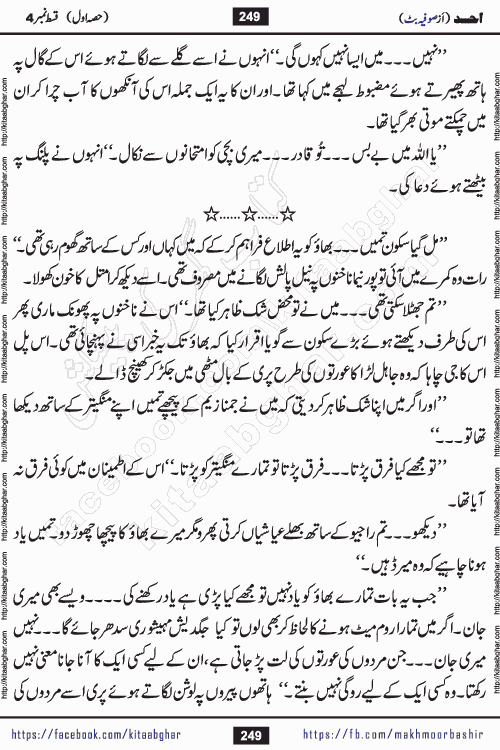 احسد (از صوفیہ بٹ) 249 (حصہ اول) قسط نمبر 4
’’نہیں ۔۔۔ میں ایسا نہیں کہوں گی۔‘‘ انہوں نے اسے گلے سے لگاتے ہوئے اس کے گال پہ
ہاتھ پھیرتے ہوئے مضبوط لہجے میں کہا تھا۔ اور ان کا یہ ایک جملہ اس کی آنکھوں کا آب چرا کر ان
میں چمکتے موتی بھر گیا تھا۔
’’یا اللہ میں بے بس ۔۔۔ تُو قادر ۔۔۔ میری بچی کو امتحانوں سے نکال۔‘‘ انہوں نے پلنگ پہ
بیٹھتے ہوئے دعا کی۔
☆......☆......☆
’’مل گیا سکون تمہیں ۔۔۔ بھاؤ کو یہ اطلاع فراہم کر کے کہ میں کہاں اور کس کے ساتھ گھوم رہی تھی۔‘‘
رات وہ کمرے میں آئی تو پورنیما ناخنوں پہ نیل پالش لگانے میں مصروف تھی۔ اسے دیکھ کر امتل کا خون کھولا۔
’’تم جھٹلا سکتی تھی ۔۔۔ میں نے تو محض شک ظاہر کیا تھا۔‘‘ اس نے ناخنوں پہ پھونک ماری پھر
اس کی طرف دیکھتے ہوئے بڑے سکون سے گویا اقرار کیا کہ بھاؤ تک یہ خبر اسی نے پہنچائی تھی۔ اس پل
اس کا جی چاہا کہ وہ جاہل لڑاکا عورتوں کی طرح پری کے بال مٹھی میں جکڑ کر کھینچ ڈالے۔
’’اور اگر میں اپنا شک ظاہر کر دیتی کہ میں نے جمنازیم کے پیچھے تمہیں اپنے منگیتر کے ساتھ دیکھا
تھا تو ۔۔۔‘‘
’’تو مجھے کیا فرق پڑتا ۔۔۔ فرق پڑتا تو تمہارے منگیتر کو پڑتا۔‘‘ اس کے اطمینان میں کوئی فرق نہ
آیا تھا۔
’’دیکھو ۔۔۔ تم راجیو کے ساتھ بھلے عیاشیاں کرتی پھرو مگر میرے بھاؤ کا پیچھا چھوڑ دو۔ تمہیں یاد
ہونا چاہیے کہ وہ میرڈ ہیں۔‘‘
’’جب یہ بات تمہارے بھاؤ کو یاد نہیں تو مجھے کیا پڑی ہے یاد رکھنے کی ۔۔۔۔ ویسے بھی میری
جان۔ اگر میں تمہارا روم میٹ ہونے کا لحاظ کر بھی لوں تو کیا جگدیش مہیشوری سدھر جائے گا۔۔۔ نہیں
میری جان ۔۔۔ جن مردوں کی عورتوں کی لت پڑ جاتی ہے، ان کے لیے کسی ایک کا آنا جانا معنی نہیں
رکھتا۔ وہ کسی ایک کے لیے روگی نہیں بنتے۔‘‘ ہاتھوں پیروں پہ لوشن لگاتے ہوئے پری اسے مردوں کی
https://facebook.com/kitaabghar 249 https://fb.com/makhmoorbashir